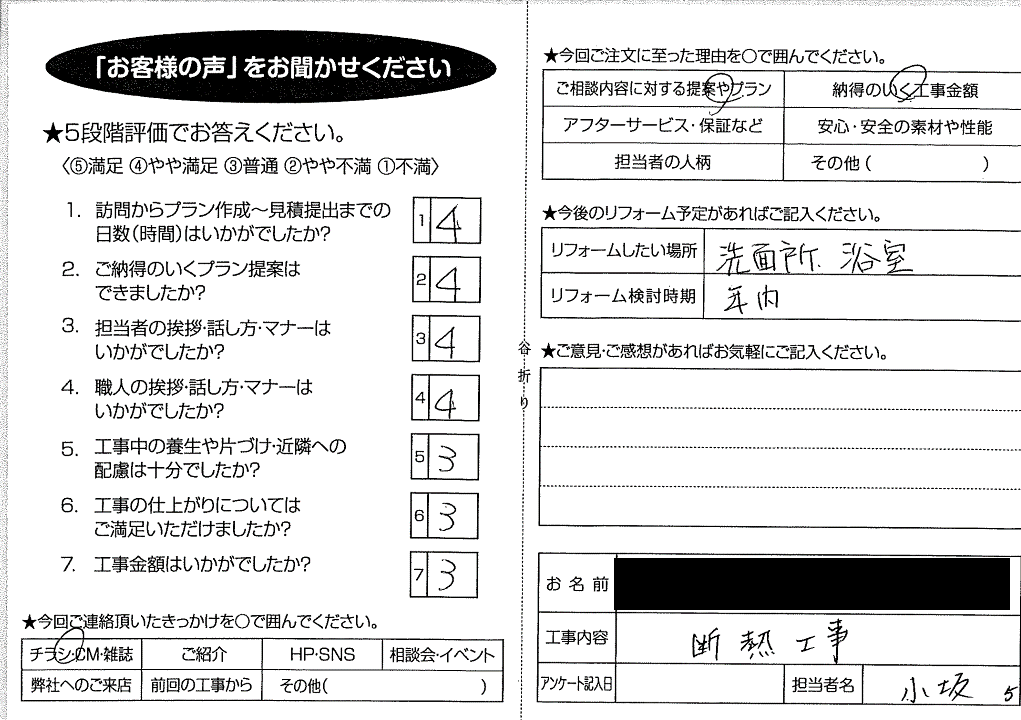 「お客様の声」をお聞かせください
★5段階評価でお答えください。
〈⑤満足 ④やや満足 ③普通 ②やや不満 ①不満〉
1. 訪問からプラン作成～見積提出までの
日数(時間)はいかがでしたか?
1 4
2. ご納得のいくプラン提案は
できましたか?
2 4
3. 担当者の挨拶・話し方・マナーは
いかがでしたか?
3 4
4. 職人の挨拶・話し方・マナーは
いかがでしたか?
4 4
5. 工事中の養生や片づけ・近隣への
配慮は十分でしたか?
5 3
6. 工事の仕上がりについては
ご満足いただけましたか?
6 3
7. 工事金額はいかがでしたか?
7 3
★今回ご連絡頂いたきっかけを〇で囲んでください。
チラシ・CM・雑誌 ご紹介 HP・SNS 相談会・イベント
弊社へのご来店 前回の工事から その他( )
谷折り
★今回ご注文に至った理由を〇で囲んでください。
ご相談内容に対する提案やプラン 納得のいく工事金額
アフターサービス・保証など 安心・安全の素材や性能
担当者の人柄 その他( )
★今後のリフォーム予定があればご記入ください。
リフォームしたい場所 洗面所、浴室
リフォーム検討時期 年内
★ご意見・ご感想があればお気軽にご記入ください。
お名前
工事内容 断熱工事
アンケート記入日 担当者名 小坂 5